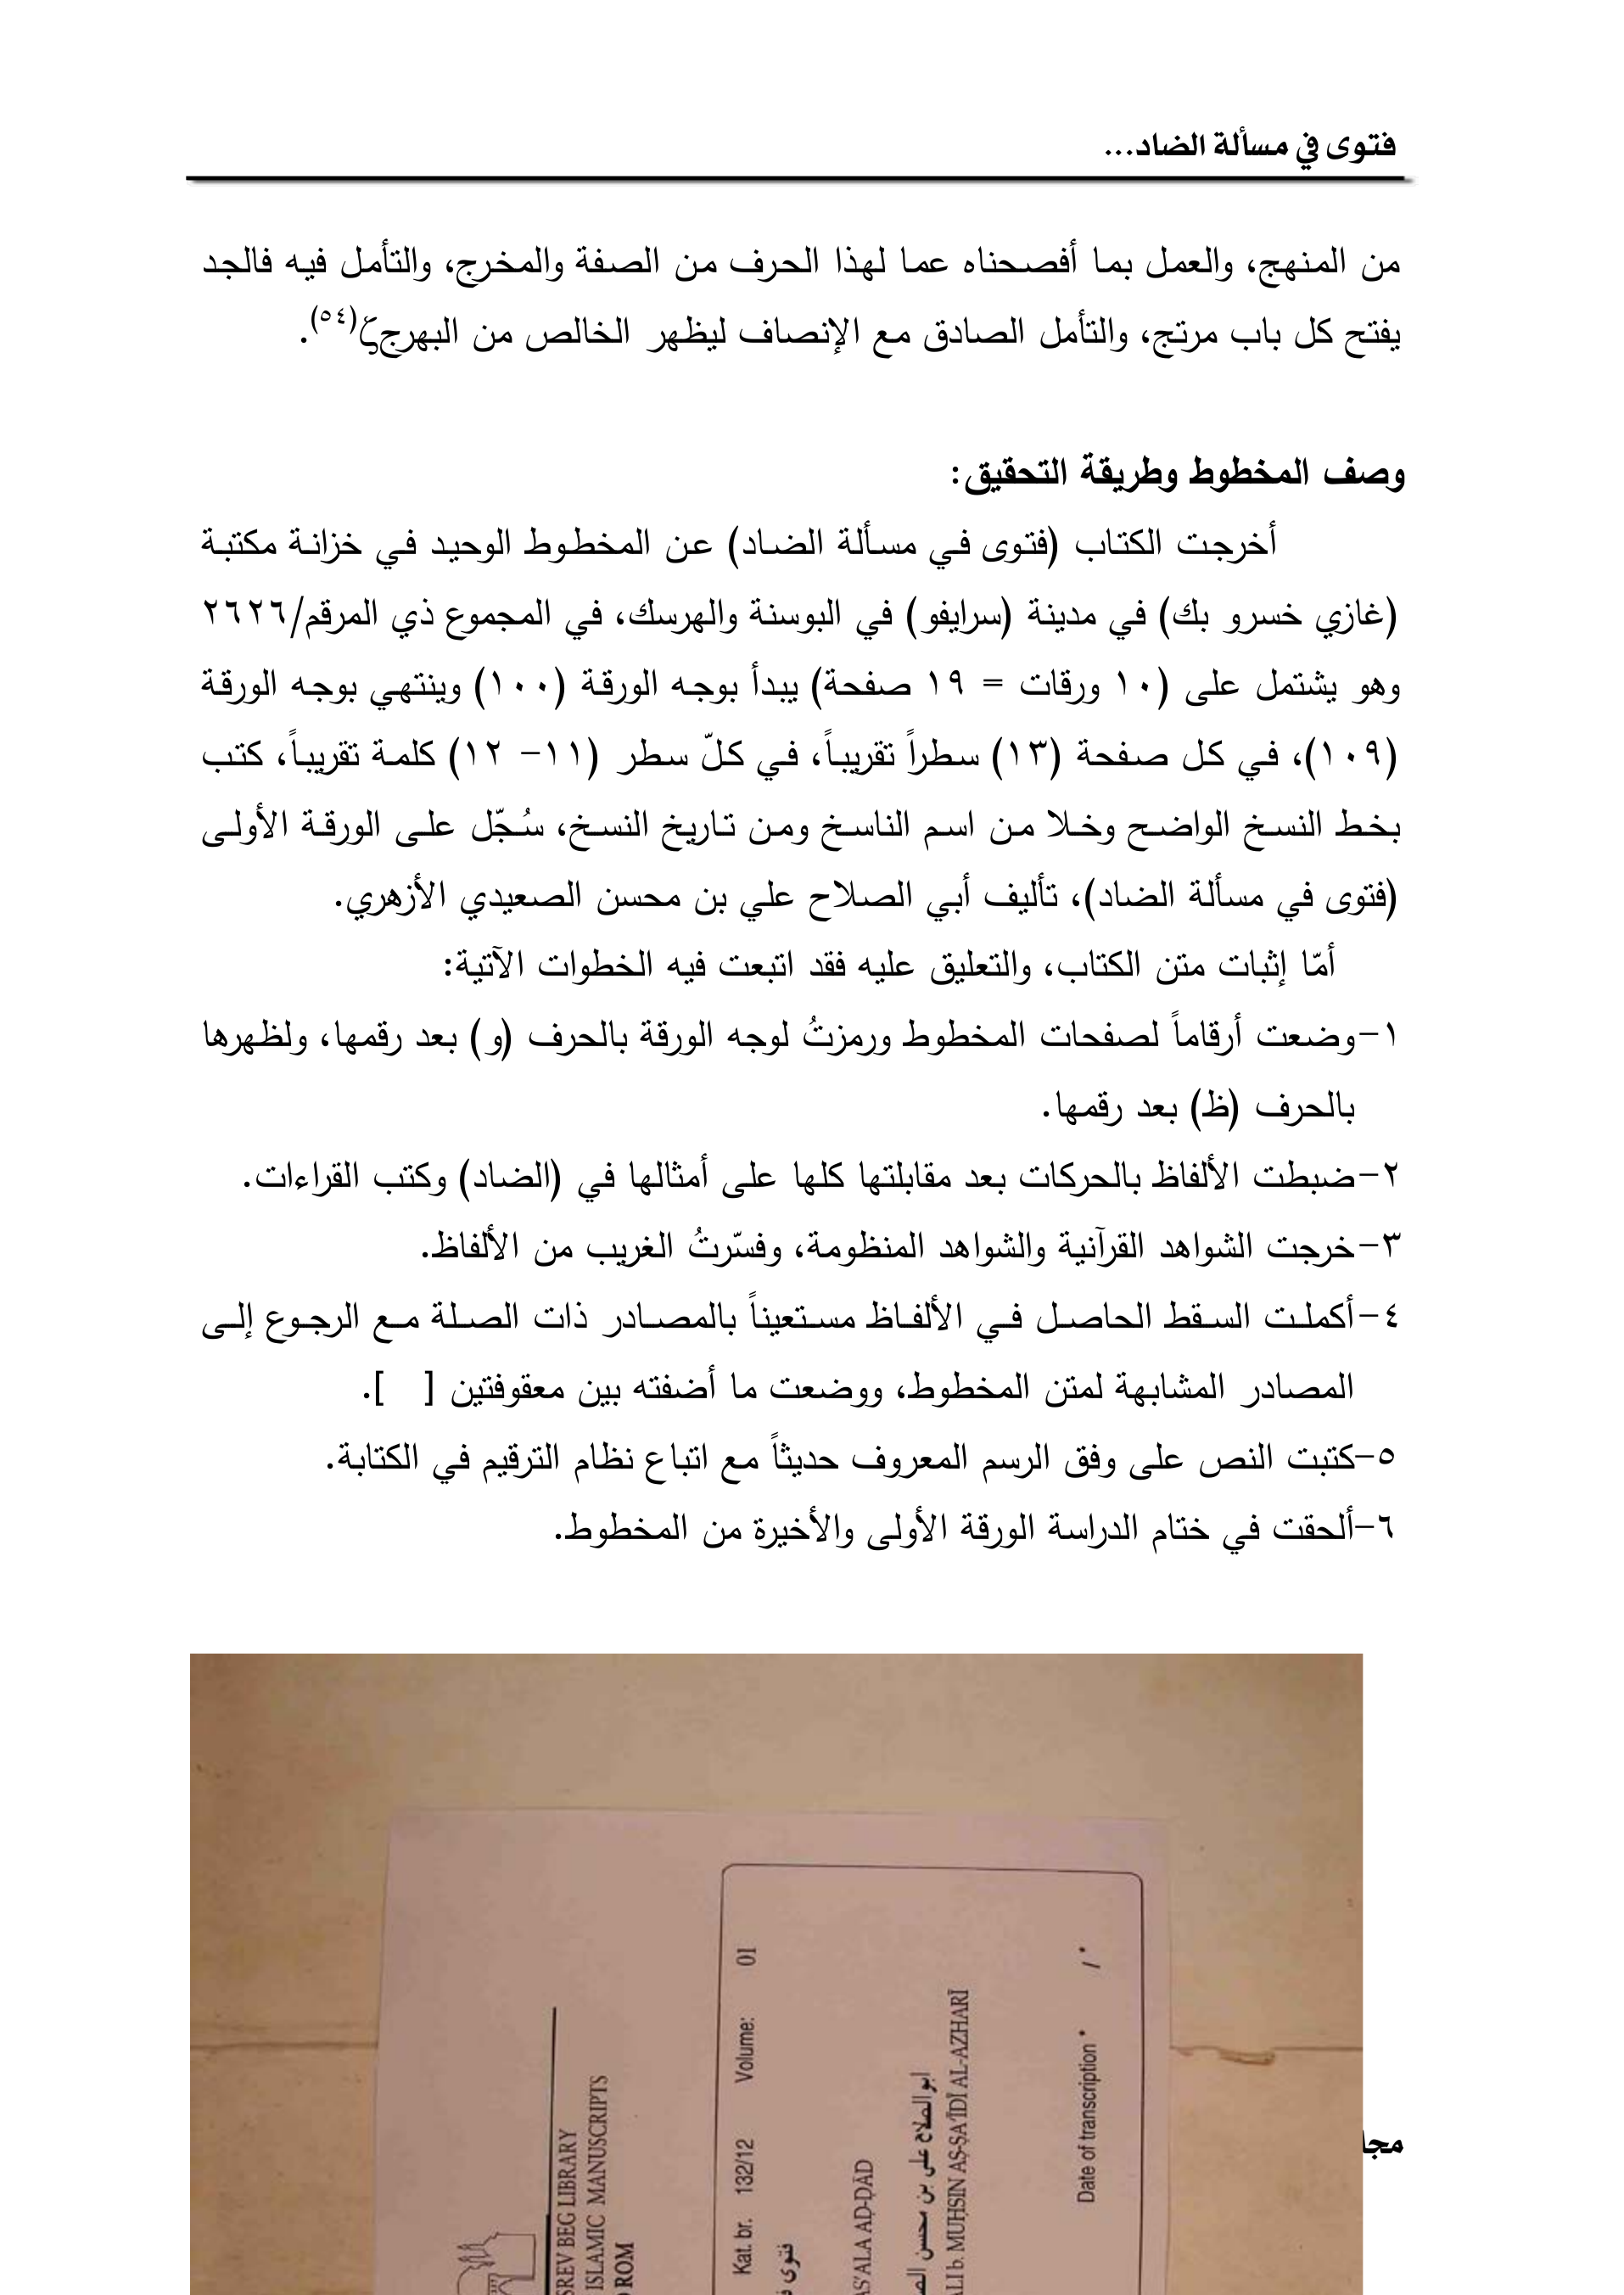 فتوى في مسألة الضاد...
من المنهج، والعمل بما أفصحناه عما لهذا الحرف من الصفة والمخرج، والتأمل فيه فالجد
يفتح كل باب مرتج، والتأمل الصادق مع الإنصاف ليظهر الخالص من البهرجζ(٥٤).
وصف المخطوط وطريقة التحقيق:
أخرجت الكتاب (فتوى في مسألة الضاد) عن المخطوط الوحيد في خزانة مكتبة
(غازي خسرو بك) في مدينة (سرايفو) في البوسنة والهرسك، في المجموع ذي المرقم/٢٦٢٦
وهو يشتمل على (١٠ ورقات = ١٩ صفحة) يبدأ بوجه الورقة (١٠٠) وينتهي بوجه الورقة
(١٠٩)، في كل صفحة (١٣) سطراً تقريباً، في كلّ سطر (١١- ١٢) كلمة تقريباً، كتب
بخط النسخ الواضح وخلا من اسم الناسخ ومن تاريخ النسخ، سُجّل على الورقة الأولى
(فتوى في مسألة الضاد)، تأليف أبي الصلاح علي بن محسن الصعيدي الأزهري.
أمّا إثبات متن الكتاب، والتعليق عليه فقد اتبعت فيه الخطوات الآتية:
١-وضعت أرقاماً لصفحات المخطوط ورمزتُ لوجه الورقة بالحرف (و) بعد رقمها، ولظهرها
بالحرف (ظ) بعد رقمها.
٢-ضبطت الألفاظ بالحركات بعد مقابلتها كلها على أمثالها في (الضاد) وكتب القراءات.
٣-خرجت الشواهد القرآنية والشواهد المنظومة، وفسّرتُ الغريب من الألفاظ.
٤-أكملت السقط الحاصل في الألفاظ مستعيناً بالمصادر ذات الصلة مع الرجوع إلى
المصادر المشابهة لمتن المخطوط، ووضعت ما أضفته بين معقوفتين [ ].
٥-كتبت النص على وفق الرسم المعروف حديثاً مع اتباع نظام الترقيم في الكتابة.
٦-ألحقت في ختام الدراسة الورقة الأولى والأخيرة من المخطوط.
SREV BEG LIBRARY
ISLAMIC MANUSCRIPTS
ROM
Kat. br. 132/12 Volume: 01
فتوى
AS'ALA AḌ-ḌĀD
ابو الصلاح على بن محسن
ALI b. MUḤSIN AṢ-ṢA'ĪDĪ AL-AZHARĪ
Date of transcription * / *
مجا